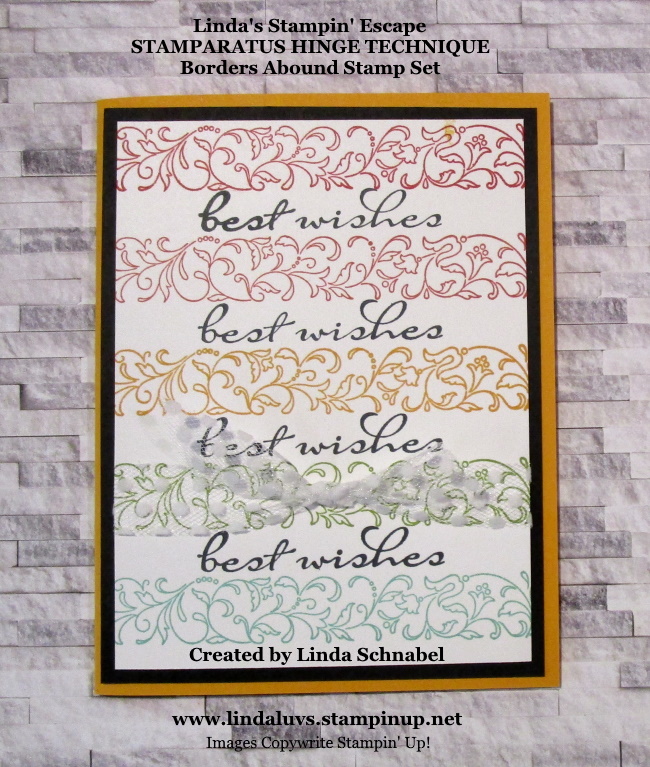 Linda's Stampin' Escape
STAMPARATUS HINGE TECHNIQUE
Borders Abound Stamp Set
best wishes
best wishes
best wishes
best wishes
Created by Linda Schnabel
www.lindaluvs.stampinup.net
Images Copywrite Stampin' Up!